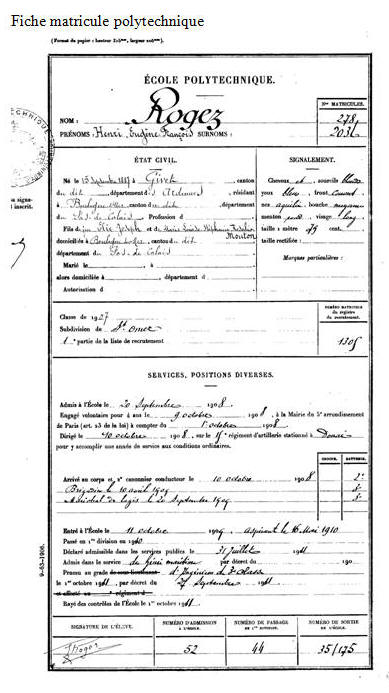 Fiche matricule polytechnique
(Format du papier : hauteur 315mm, largeur 206mm).
ÉCOLE POLYTECHNIQUE.
Nos MATRICULES.
NOM : Rogez
278
PRÉNOMS : Henri Eugène François SURNOMS :
2031
ÉTAT CIVIL.
SIGNALEMENT.
Né le 15 Septembre 1887 à Givet, canton
Cheveux et sourcils
du dit, département d Ardennes, résidant
yeux bleus, front
à Boulogne s/Mer, canton du dit, département
nez aquilin, bouche moyenne
du Pas de Calais Profession d
menton rond, visage long
Fils de Joseph et de
taille : 1 mètre 75 cent.
Mouton
domiciliés à Boulogne s/Mer, canton du dit
taille rectifiée :
département du Pas de Calais
Marques particulières :
Marié le à
alors domiciliée à département d
Autorisation d
Classe de 1907
NUMÉRO MATRICULE
du registre
du recrutement.
Subdivision de St Omer
1e partie de la liste de recrutement
1305
SERVICES, POSITIONS DIVERSES.
Admis à l'École le 20 Septembre 1908
Engagé volontaire pour 4 ans le 9 octobre 1908, à la Mairie du 5e arrondissement
de Paris (art. 23 de la loi) à compter du 1 octobre 1908
Dirigé le 10 octobre 1908, sur le 15e régiment d'artillerie stationné à Douai
pour y accomplir une année de service aux conditions ordinaires.
GROUPE.
BATTERIE.
Arrivé au corps et 2e canonnier conducteur le 10 octobre 1908
2e
Brigadier le 10 avril 1909
3e
Maréchal des logis le 20 Septembre 1909
3e
Entré à l'École le 11 octobre 1909 aspirant le 16 Mai 1910
Passé en 1re division en 1910
Déclaré admissible dans les services publics le 31 juillet 1911
Admis dans le service du Génie maritime par décret du 190
Promu au grade de sous-lieutenant d'Ingénieur de 3e classe
le 1er octobre 1911, par décret du 27 Septembre 1911
et affecté au régiment d
Rayé des contrôles de l'École le 1er octobre 1911
SIGNATURE DE L'ÉLÈVE.
NUMÉRO D'ADMISSION
à l'école.
NUMÉRO DE PASSAGE
en 1re division.
NUMÉRO DE SORTIE
de l'école.
Rogez
52
44
35/175
9-63-1906.